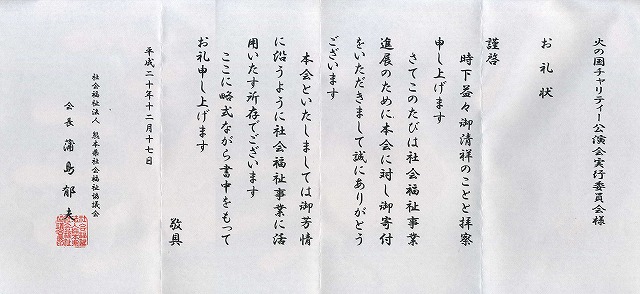 火の国チャリティー公演会実行委員会様
お礼状
謹啓
時下益々御清祥のことと拝察
申し上げます
さてこのたびは社会福祉事業
進展のために本会に対し御寄付
をいただきまして誠にありがとう
ございます
本会といたしましては御芳情
に沿うように社会福祉事業に活
用いたす所存でございます
ここに略式ながら書中をもって
お礼申し上げます
敬具
平成二十年十二月十七日
社会福祉法人 熊本県社会福祉協議会
会長 浦島郁夫